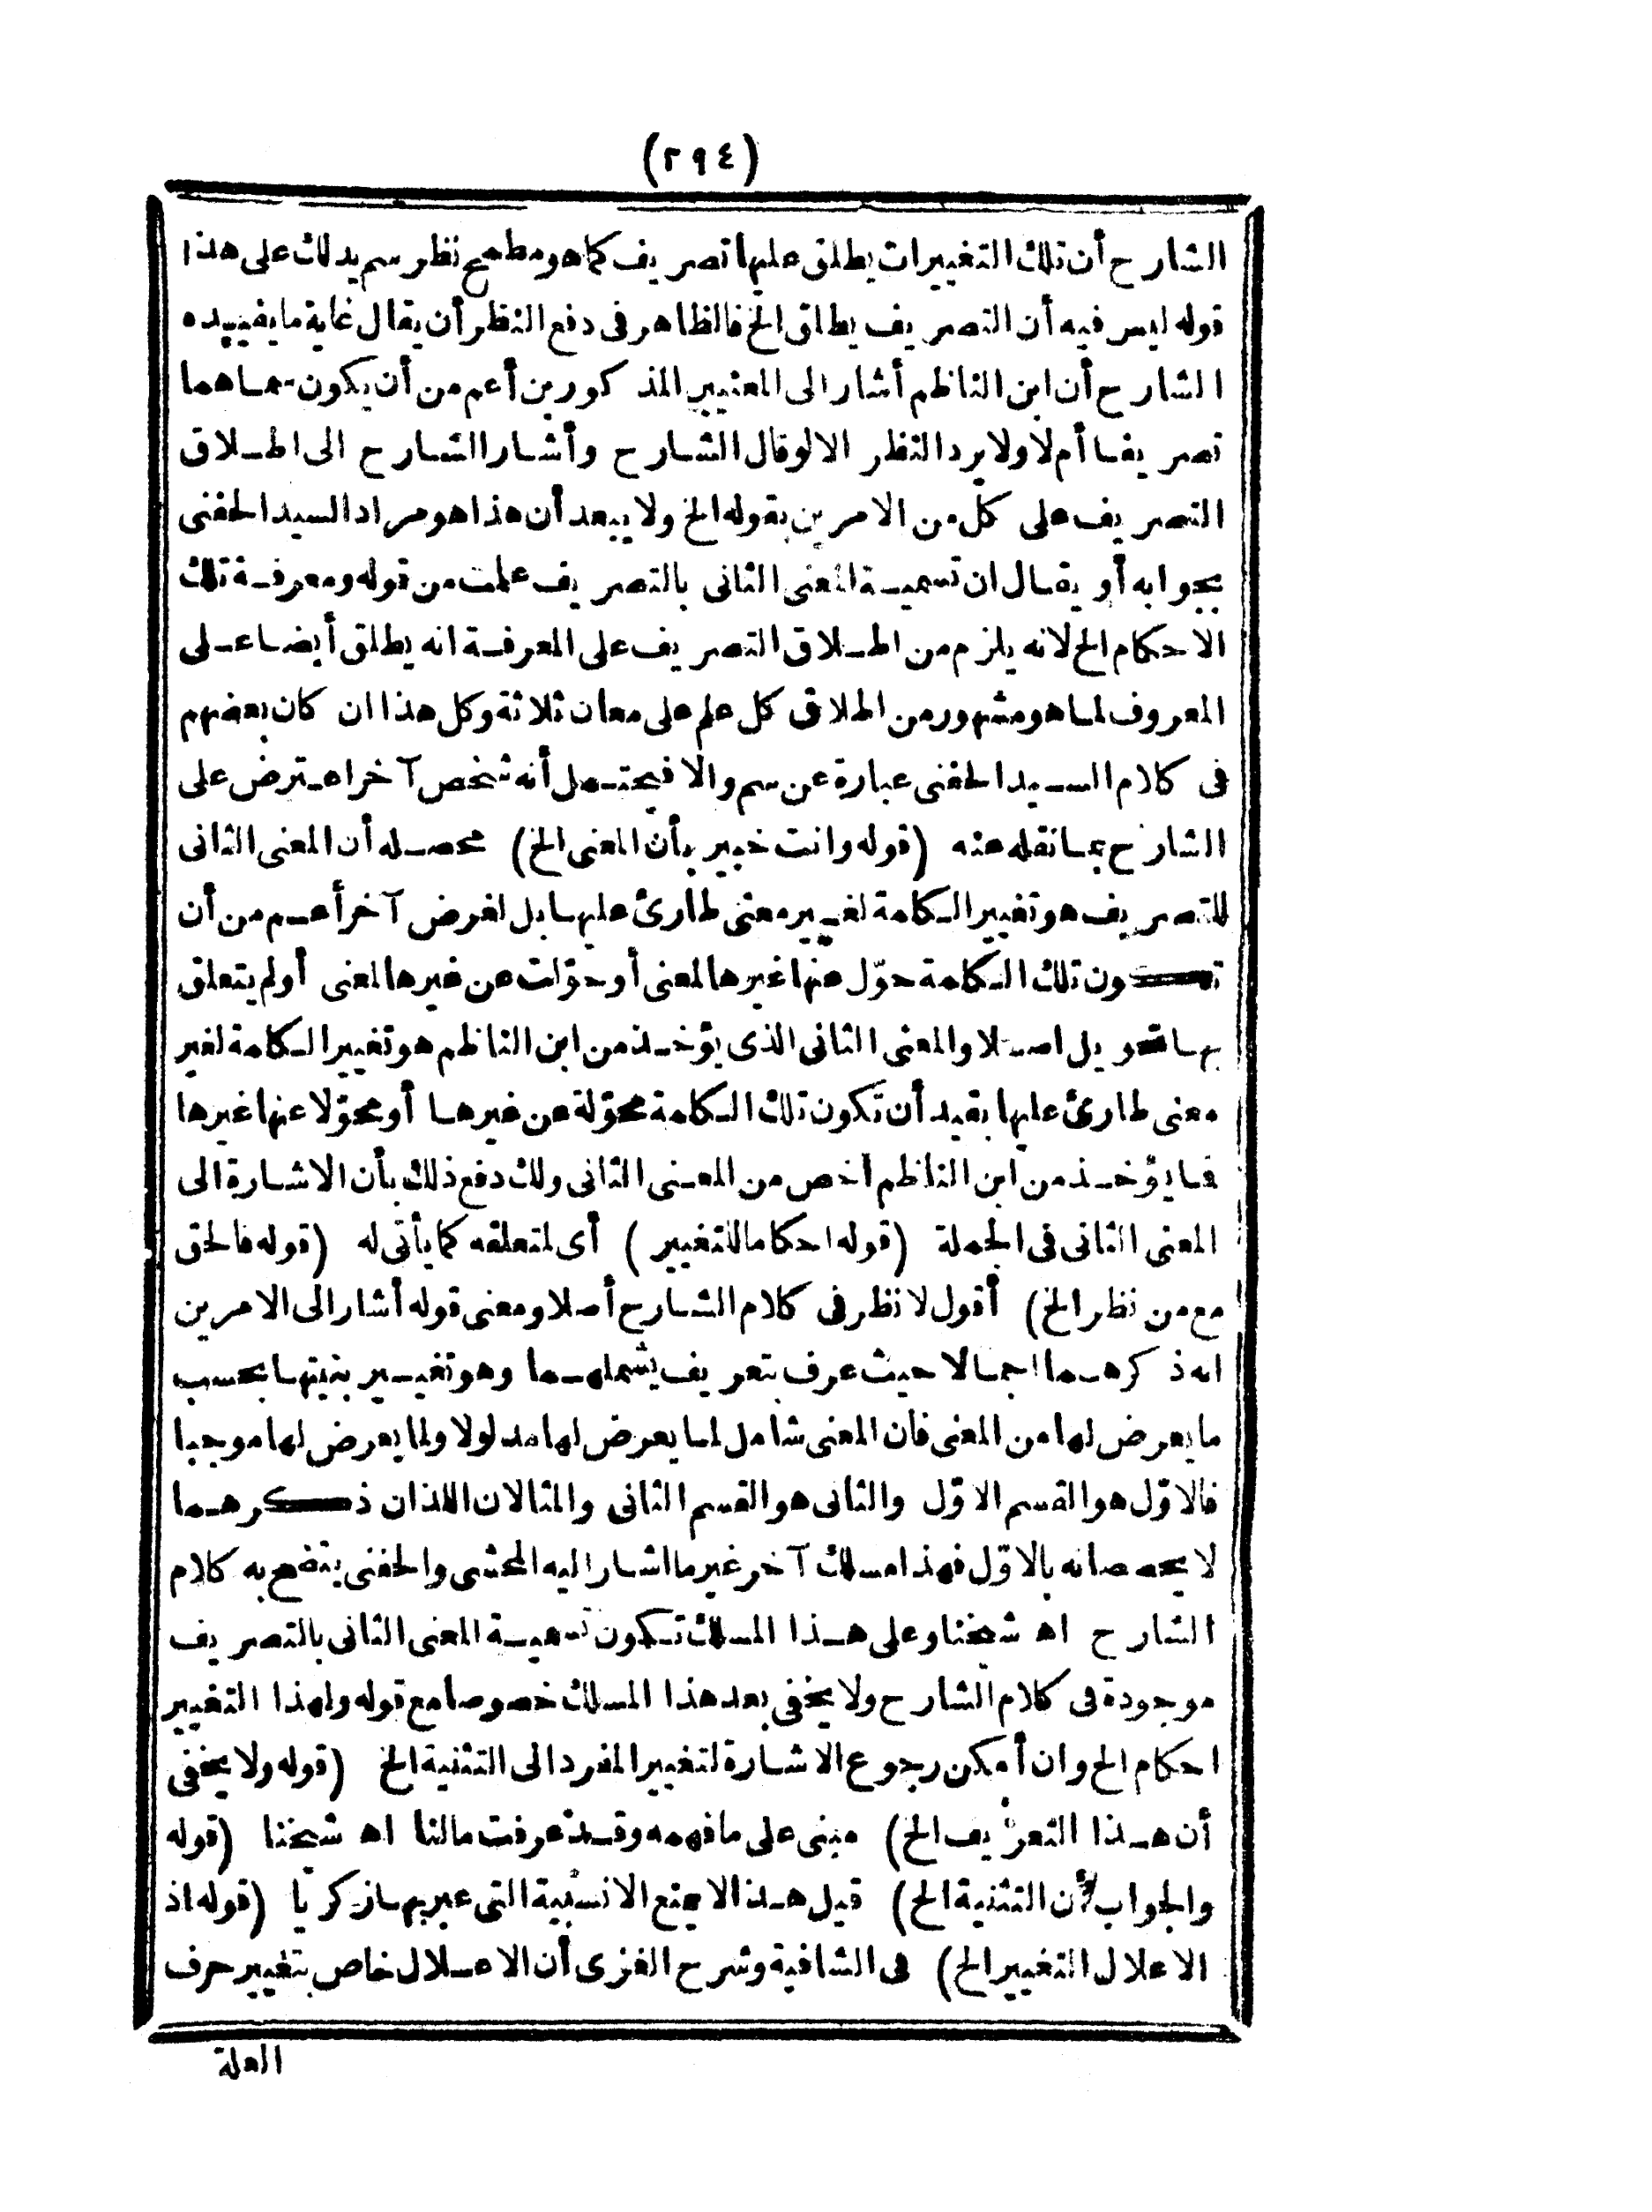 (٢٩٤)
الشارح أن تلك التغييرات يطلق عليها تصريف كما هو مطمح نظر سم يدلك على هذا
قوله ليس فيه أن التصريف يطلق الخ فالظاهر فى دفع النظر أن يقال غاية ما يفيده
الشارح أن ابن الناظم أشار الى المعنيين المذكورين أعم من أن يكون سماهما
تصريفا أم لا ولا يرد النظر الا لو قال الشارح وأشار الشارح الى اطلاق
التصريف على كل من الامرين بقوله الخ ولا يبعد أن هذا هو مراد السيد الحفنى
بجوابه أو يقال ان تسمية المعنى الثانى بالتصريف علمت من قوله ومعرفة تلك
الاحكام الخ لانه يلزم من اطلاق التصريف على المعرفة انه يطلق أيضا على
المعروف لما هو مشهور من اطلاق كل علم على معان ثلاثة وكل هذا ان كان بعضهم
فى كلام السيد الحفنى عبارة عن سم والا فيحتمل أنه شخص آخر اعترض على
الشارح بما نقله عنه (قوله وانت خبير بأن المعنى الخ) محصله أن المعنى الثانى
للتصريف هو تغيير الكلمة لغير معنى طارئ عليها بل لغرض آخر أعم من أن
تكون تلك الكلمة حوّل عنها غيرها لمعنى أو حوّلت عن غيرها لمعنى أو لم يتعلق
بها تحويل اصلا والمعنى الثانى الذى يؤخذ من ابن الناظم هو تغيير الكلمة لغير
معنى طارئ عليها بقيد أن تكون تلك الكلمة محوّلة عن غيرها أو محوّلا عنها غيرها
فما يؤخذ من ابن الناظم أخص من المعنى الثانى ولك دفع ذلك بأن الاشارة الى
المعنى الثانى فى الجملة (قوله احكاما للتغيير) أى لمتعلقه كما يأتى له (قوله فالحق
مع من نظر الخ) أقول لا نظر فى كلام الشارح أصلا ومعنى قوله أشار الى الامرين
انه ذكرهما اجمالا حيث عرف بتعريف يشملهما وهو تغيير بنيتها بحسب
ما يعرض لها من المعنى فان المعنى شامل لما يعرض لها مدلولا ولما يعرض لها موجبا
فالاوّل هو القسم الاوّل والثانى هو القسم الثانى والمثالان اللذان ذكرهما
لا يخصصانه بالاوّل فهذا مسلك آخر غير ما اشار اليه المحشى والحفنى يتضح به كلام
الشارح اه شيخنا وعلى هذا المسلك تكون تسمية المعنى الثانى بالتصريف
موجودة فى كلام الشارح ولا يخفى بعد هذا المسلك خصوصا مع قوله ولهذا التغيير
احكام الخ وان أمكن رجوع الاشارة لتغيير المفرد الى التثنية الخ (قوله ولا يخفى
أن هذا التعريف الخ) مبنى على ما فهمه وقد عرفت مالنا اه شيخنا (قوله
والجواب لأن التثنية الخ) قيل هذا لا يمنع الانسبية التى عبر بها زكريا (قوله اذ
الاعلال التغيير الخ) فى الشافية وشرح الغزى أن الاعلال خاص بتغيير حرف
العلة